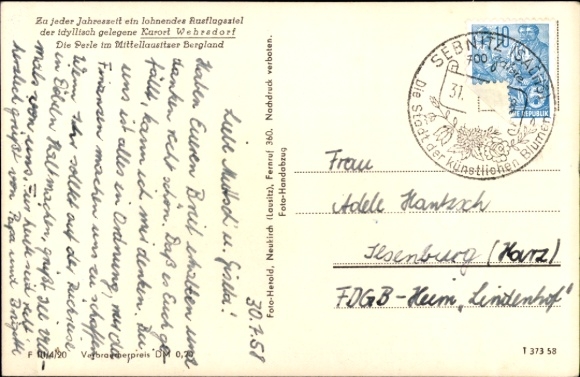 Zu jeder Jahreszeit ein lohnendes Ausflugsziel
der idyllisch gelegene Kurort Wehrsdorf
Die Perle im Mittellausitzer Bergland
30.7.58
Liebe Mutsch u. Gisela!
Haben Euren Brief erhalten und
danken recht schön. Daß es Euch ge-
fällt, kann ich mir denken. Bei
uns ist alles in Ordnung, nur die
Finanzen machen uns zu schaffen.
Wenn Ihr sollt auf der Rückreise
in Eilen Halt machen, grüßt sie viel-
mals von uns.
herzlich grüßt von Papa und Brigitte
F 10/4/20 Verbraucherpreis DM 0,20
Foto-Herold, Neukirch (Lausitz), Fernruf 360. Nachdruck verboten.
Foto-Handabzug
SEBNITZ (SACHS)
700
31.
Die Stadt der künstlichen Blumen
10
Frau
Adele Hantzsch
Ilsenburg (Harz)
FDGB-Heim „Lindenhof"
T 373 58